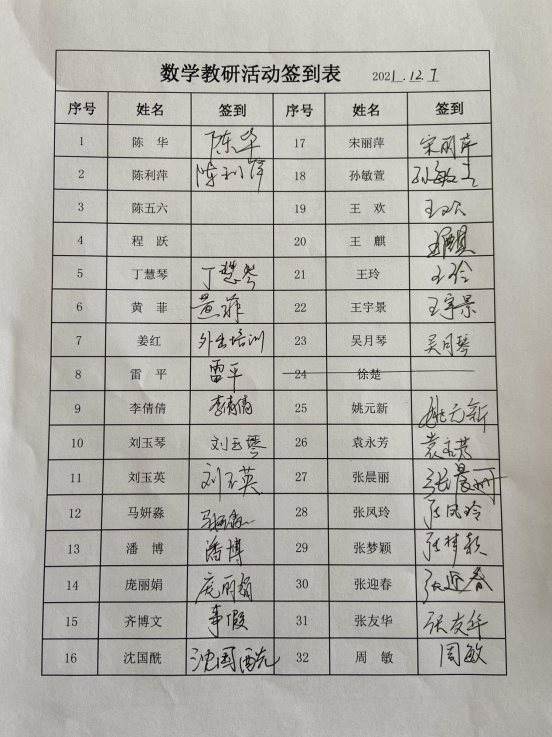 数学教研活动签到表 2021.12.7
序号 姓名 签到 序号 姓名 签到
1 陈 华 陈华 17 宋丽萍 宋丽萍
2 陈利萍 陈利萍 18 孙敏萱 孙敏萱
3 陈五六 19 王 欢 王欢
4 程 跃 20 王 麒 王麒
5 丁慧琴 丁慧琴 21 王玲 王玲
6 黄 菲 黄菲 22 王宇景 王宇景
7 姜红 外出培训 23 吴月琴 吴月琴
8 雷 平 雷平 24 徐楚
9 李倩倩 李倩倩 25 姚元新 姚元新
10 刘玉琴 刘玉琴 26 袁永芳 袁永芳
11 刘玉英 刘玉英 27 张晨丽 张晨丽
12 马妍淼 马妍淼 28 张凤玲 张凤玲
13 潘 博 潘博 29 张梦颖 张梦颖
14 庞丽娟 庞丽娟 30 张迎春 张迎春
15 齐博文 事假 31 张友华 张友华
16 沈国酰 沈国酰 32 周 敏 周敏